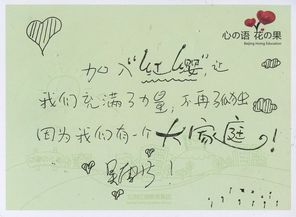 心の语 花の果
Beijing Hong Education
加入“红缨”让
我们充满了力量,不再孤独
因为我们有一个大家庭!